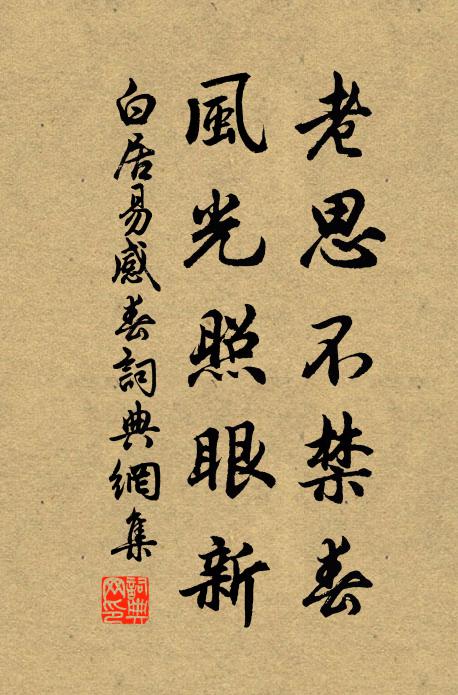 老思不禁春
風光照眼新
白居易感春詞典網集
詞典
網印